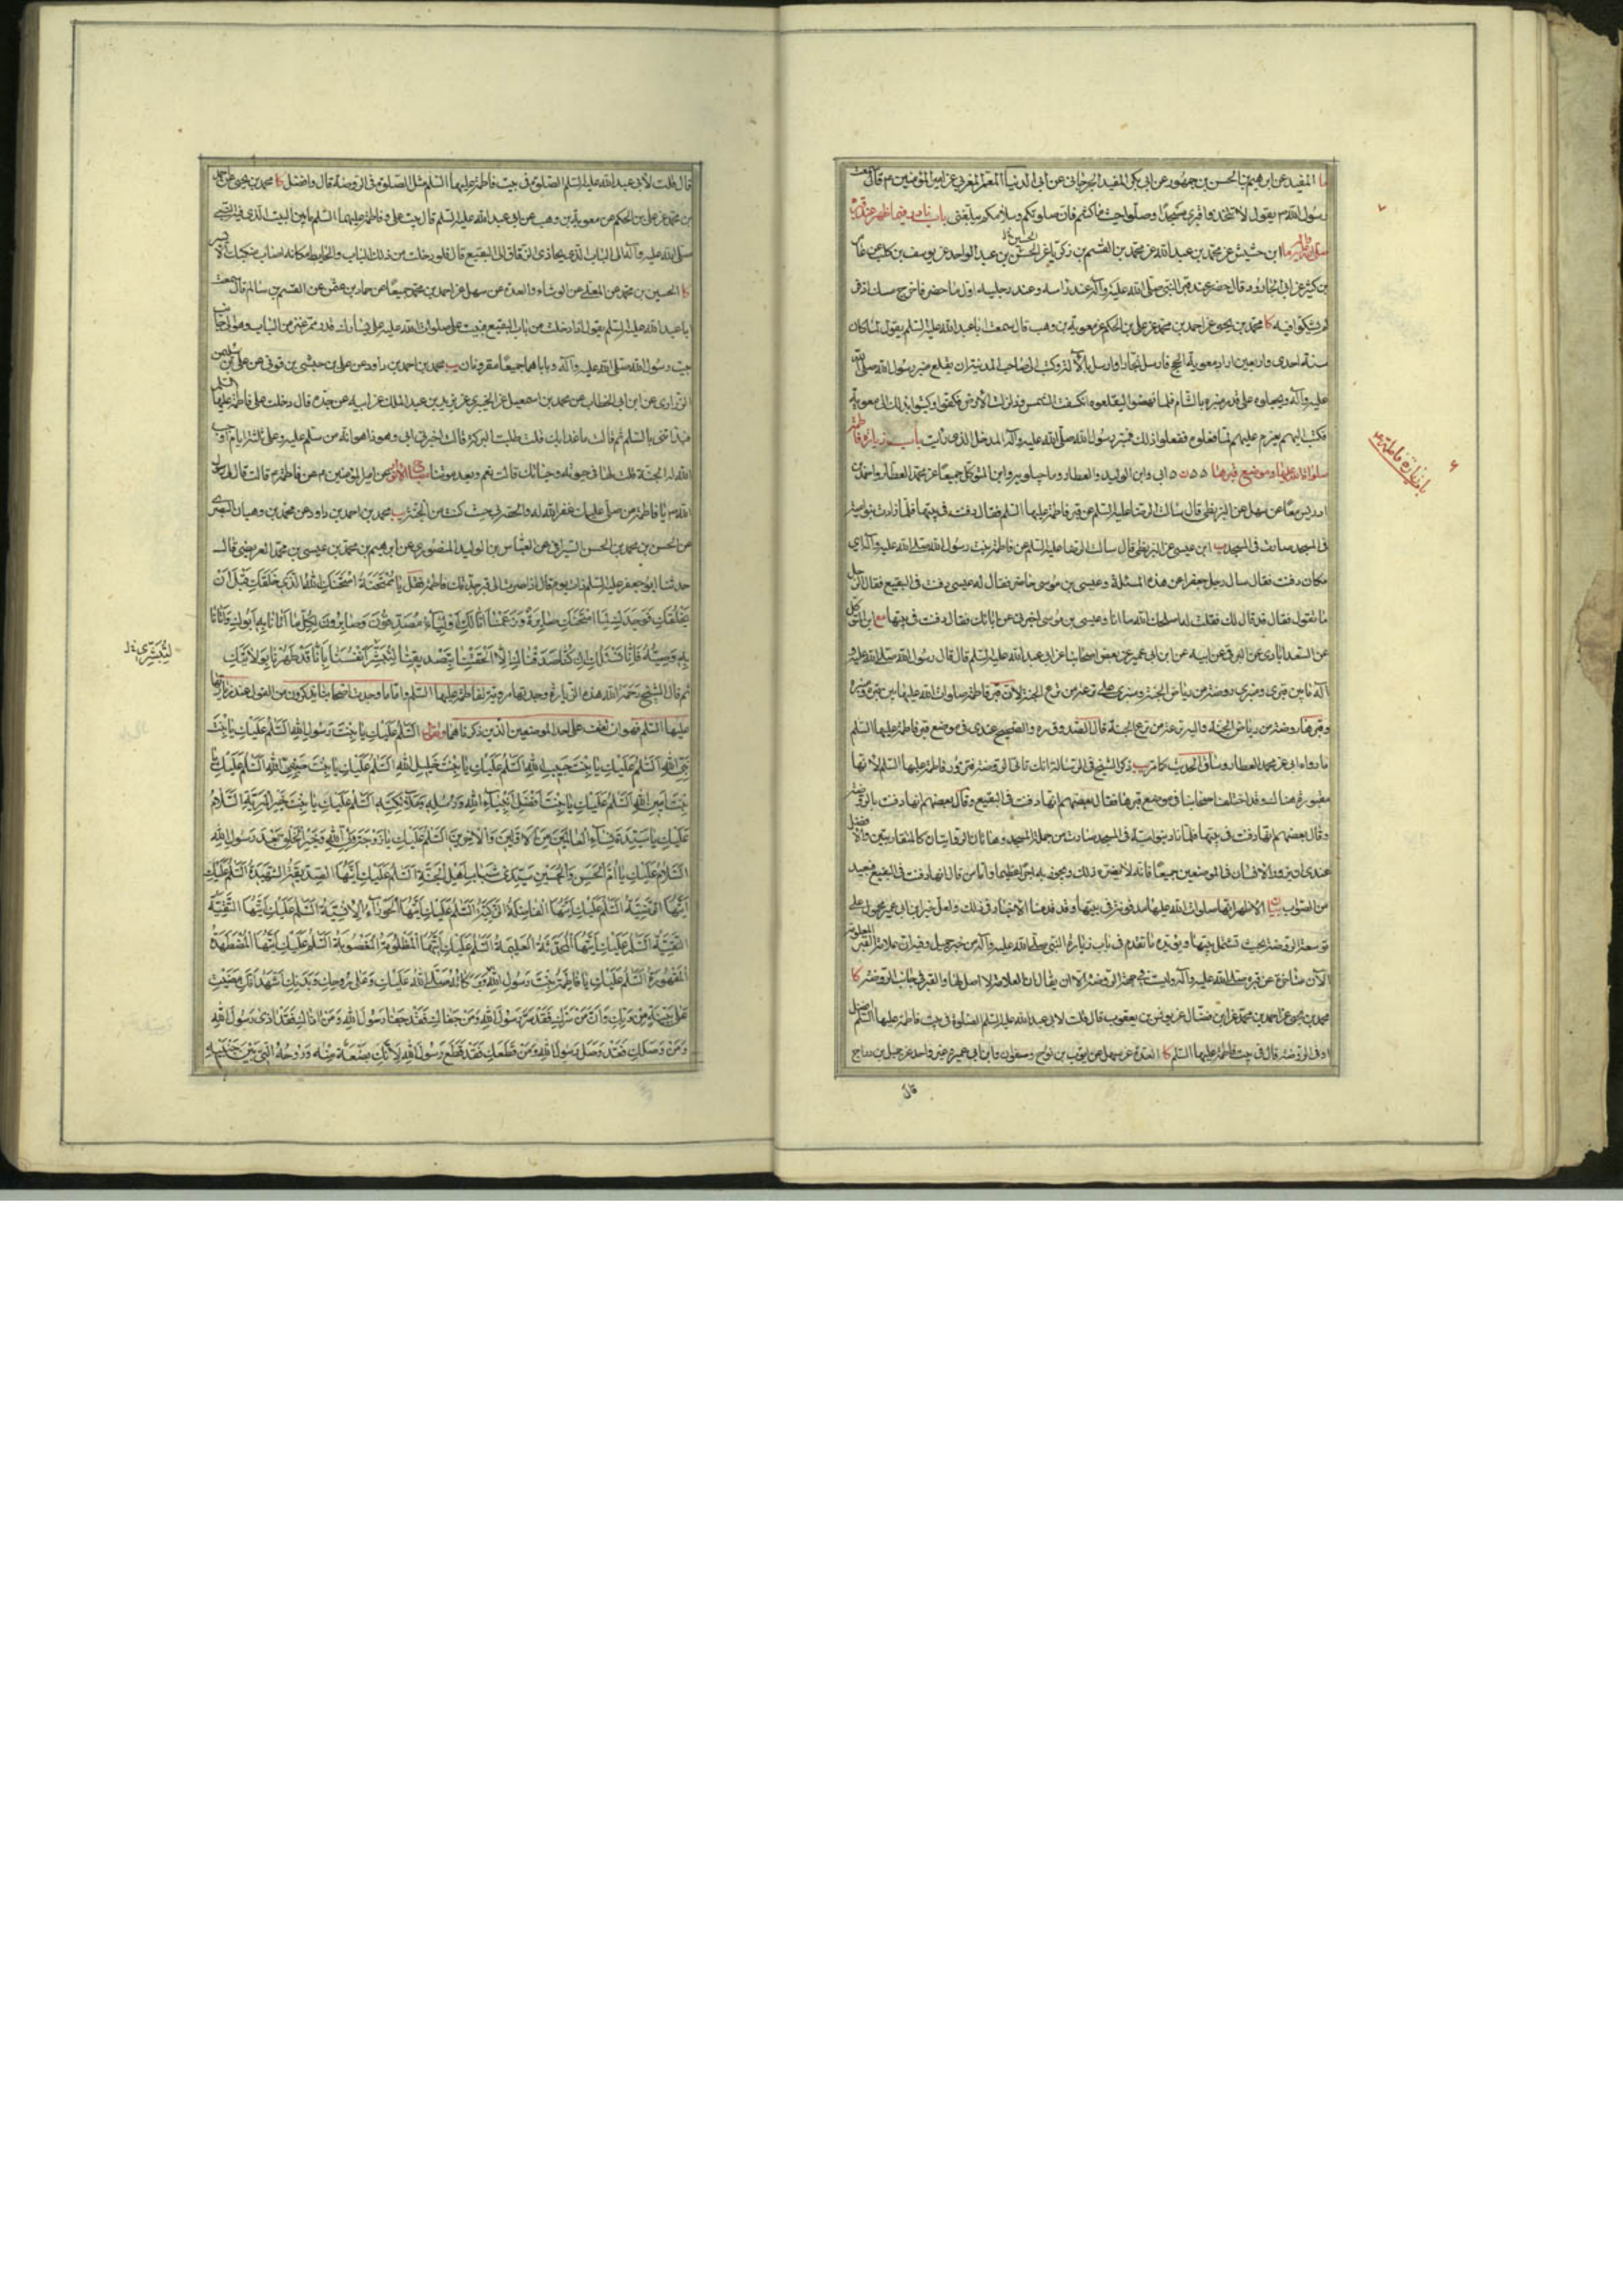 ما المفيد عن ابرهيم بن الحسن بن جمهور عن ابى بكر المفيد الجرجرائى عن ابى الدنيا المعمر المغربى عن امير المؤمنين م قال سمعت
رسول الله م يقول لا تتخذوا قبرى مسجدا وصلوا حيث ما كنتم فان صلوتكم وسلامكم يبلغنى باب نادر فيما ظهر عند قبره
صلى الله عليه وآله ما ابن حشيش عن محمد بن عبد الله عن محمد بن القسم بن زكريا عن الحسن بن عبد الواحد عن يوسف بن كليب عن عامر
بن كثير عن ابى الجارود قال حفر عند قبر النبى صلى الله عليه وآله عند راسه وعند رجليه اول ما حفر فاخرج مسك اذفر
لم يشكوا فيه كا محمد بن يحيى عن احمد بن محمد عن على بن الحكم عن معوية بن وهب قال سمعت ابا عبد الله عليه السلم يقول لما كان
سنة احدى واربعين اراد معوية الحج فارسل نجارا وارسل بالآلة وكتب الى صاحب المدينة ان يقلع منبر رسول الله صلى الله
عليه وآله ويجعلوه على قدر منبره بالشام فلما نهضوا ليقلعوه انكسفت الشمس وزلزلت الارض فكفوا وكتبوا بذلك الى معوية
فكتب اليهم يعزم عليهم لما فعلوه ففعلوا ذلك فمنبر رسول الله صلى الله عليه وآله المدخل الذى رايت باب زيارة فاطمة
صلوات الله عليها وموضع قبرها ابى وابن الوليد والعطار وماجيلويه وابن المتوكل جميعا عن محمد العطار واحمد بن
ادريس معا عن سهل عن البزنطى قال سالت الرضا عليه السلم عن قبر فاطمة عليها السلم فقال دفنت فى بيتها فلما زادت بنو امية
فى المسجد صارت فى المسجد ب ابن عيسى عن البزنطى قال سالت الرضا عليه السلم عن فاطمة بنت رسول الله صلى الله عليه وآله اى
مكان دفنت فقال سال رجل جعفرا عن هذه المسئلة وعيسى بن موسى حاضر فقال له عيسى دفنت فى البقيع فقال الرجل
ما تقول فقال قد قال لك فقلت له اصلحك الله ما انا وعيسى بن موسى اخبرنى عن ابائك فقال دفنت فى بيتها مع ابن المتوكل
عن السعد ابادى عن البرقى عن ابيه عن ابن ابى عمير عن بعض اصحابنا عن ابى عبد الله عليه السلم قال قال رسول الله صلى الله عليه و
آله ما بين قبرى ومنبرى روضة من رياض الجنة ومنبرى على ترعة من ترع الجنة لان قبر فاطمة صلوات الله عليها بين قبره ومنبره
وقبرها روضة من رياض الجنة واليه ترعة من ترع الجنة قال الصدوق ره والصحيح عندى فى موضع قبر فاطمة عليها السلم
ما رواه ابى عن محمد العطار وساق الحديث كما مر ب ذكر الشيخ فى الرسالة انك تاتى الروضة فتزور فاطمة عليها السلم لانها
مقبورة هناك وقد اختلف اصحابنا فى موضع قبرها فقال بعضهم انها دفنت فى البقيع وقال بعضهم انها دفنت بالروضة
وقال بعضهم انها دفنت فى بيتها فلما زاد بنو امية فى المسجد صارت من جملة المسجد وهاتان الروايتان كالمتقاربتين والافضل
عندى ان يزور الانسان فى الموضعين جميعا فانه لا يضره ذلك ويحوز به اجرا عظيما واما من قال انها دفنت فى البقيع فبعيد
من الصواب بيان الاظهر انها صلوات الله عليها مدفونة فى بيتها وقد قدمنا الاخبار فى ذلك ولعل خبر ابن ابى عمير محمول على
توسعة الروضة بحيث تشمل بيتها ويؤيده ما تقدم فى باب زيارة النبى صلى الله عليه وآله من خبر جميل
محمد بن يحيى عن احمد بن محمد عن ابن فضال عن يونس بن يعقوب قال قلت لابى عبد الله عليه السلم الصلوة فى بيت فاطمة عليها السلم افضل
او فى الروضة قال فى بيت فاطمة عليها السلم كا العدة عن سهل عن ايوب بن نوح وصفوان وابن ابى عمير وغير واحد عن جميل بن دراج
قال
باب زيارة فاطمة ع
قال قلت لابى عبد الله عليه السلم الصلوة فى بيت فاطمة عليها السلم مثل الصلوة فى الروضة قال وافضل كا محمد بن يحيى عن احمد
بن محمد عن على بن الحكم عن معوية بن وهب عن ابى عبد الله عليه السلم قال بيت على وفاطمة عليهما السلم ما بين البيت الذى فيه النبى
صلى الله عليه وآله الى الباب الذى يحاذى الزقاق الى البقيع قال فلو دخلت من ذلك الباب والحايط مكانه اصاب منكبك الايسر
كا الحسين بن محمد عن المعلى عن الوشاء والعدة عن سهل عن احمد بن محمد جميعا عن حماد بن عثمن عن القسم بن سالم قال سمعت
ابا عبد الله عليه السلم يقول اذا دخلت من باب البقيع فبيت على صلوات الله عليه على يسارك قدر ممر عنز من الباب وهو الى جانب
بيت رسول الله صلى الله عليه وآله وباباهما جميعا مقرونان يب محمد بن احمد بن داود عن على بن حبشى بن قونى عن على بن سليمن
الزرارى عن ابن ابى الخطاب عن محمد بن اسمعيل عن الخيبرى عن يزيد بن عبد الملك عن ابيه عن جده قال دخلت على فاطمة عليها السلم
فبداتنى بالسلم ثم قالت ما غدا بك قلت طلب البركة قالت اخبرنى ابى وهو ذا هو انه من سلم عليه وعلى ثلثة ايام اوجب
الله له الجنة قلت لها فى حيوته وحياتك قالت نعم وبعد موتنا مصباح الانوار عن امير المؤمنين م عن فاطمة م قالت قال لى رسول
الله م يا فاطمة من صلى عليك غفر الله له والحقه بى حيث كنت من الجنة يب محمد بن احمد بن داود عن محمد بن وهبان البصرى
عن الحسن بن محمد بن الحسن السيرافى عن العباس بن الوليد المنصورى عن ابرهيم بن محمد بن عيسى بن محمد العريضى قال
حدثنا ابو جعفر عليه السلم ذات يوم قال اذا صرت الى قبر جدتك فاطمة فقل يا ممتحنة امتحنك الله الذى خلقك قبل ان
يخلقك فوجدك لما امتحنك صابرة وزعمنا انا لك اولياء ومصدقون وصابرون لكل ما اتانا به ابوك واتانا
به وصيه فانا نسئلك ان كنا صدقناك الا الحقتنا بتصديقنا لنبشر انفسنا بانا قد طهرنا بولايتك
لتبشرى خ ل
ثم قال الشيخ رحمه الله هذه الزيارة وجدتها مروية لفاطمة عليها السلم واما ما وجدت اصحابنا يذكرونه من القول عند زيارتها
عليها السلم فهو ان تقف على احد الموضعين الذين ذكرناهما وتقول السلم عليك يا بنت رسول الله السلم عليك يا بنت
نبى الله السلم عليك يا بنت حبيب الله السلم عليك يا بنت خليل الله السلم عليك يا بنت صفى الله السلم عليك يا
بنت امين الله السلم عليك يا بنت افضل انبياء الله ورسله وملائكته السلم عليك يا بنت خير البرية السلام
عليك يا سيدة نساء العالمين من الاولين والاخرين السلم عليك يا زوجة ولى الله وخير الخلق بعد رسول الله
السلام عليك يا ام الحسن والحسين سيدى شباب اهل الجنة السلم عليك ايتها الصديقة الشهيدة السلم عليك
ايتها الرضية المرضية السلم عليك ايتها الفاضلة الزكية السلم عليك ايتها الحوراء الانسية السلم عليك ايتها التقية
النقية السلم عليك ايتها المحدثة العليمة السلم عليك ايتها المظلومة المغصوبة السلم عليك ايتها المضطهدة
المقهورة السلم عليك يا فاطمة بنت رسول الله ورحمة الله وبركاته صلى الله عليك وعلى روحك وبدنك اشهد انك مضيت
على بينة من ربك وان من سرك فقد سر رسول الله ومن جفاك فقد جفا رسول الله ومن اذاك فقد اذى رسول الله
ومن وصلك فقد وصل رسول الله ومن قطعك فقد قطع رسول الله لانك بضعة منه وروحه التى بين جنبيه